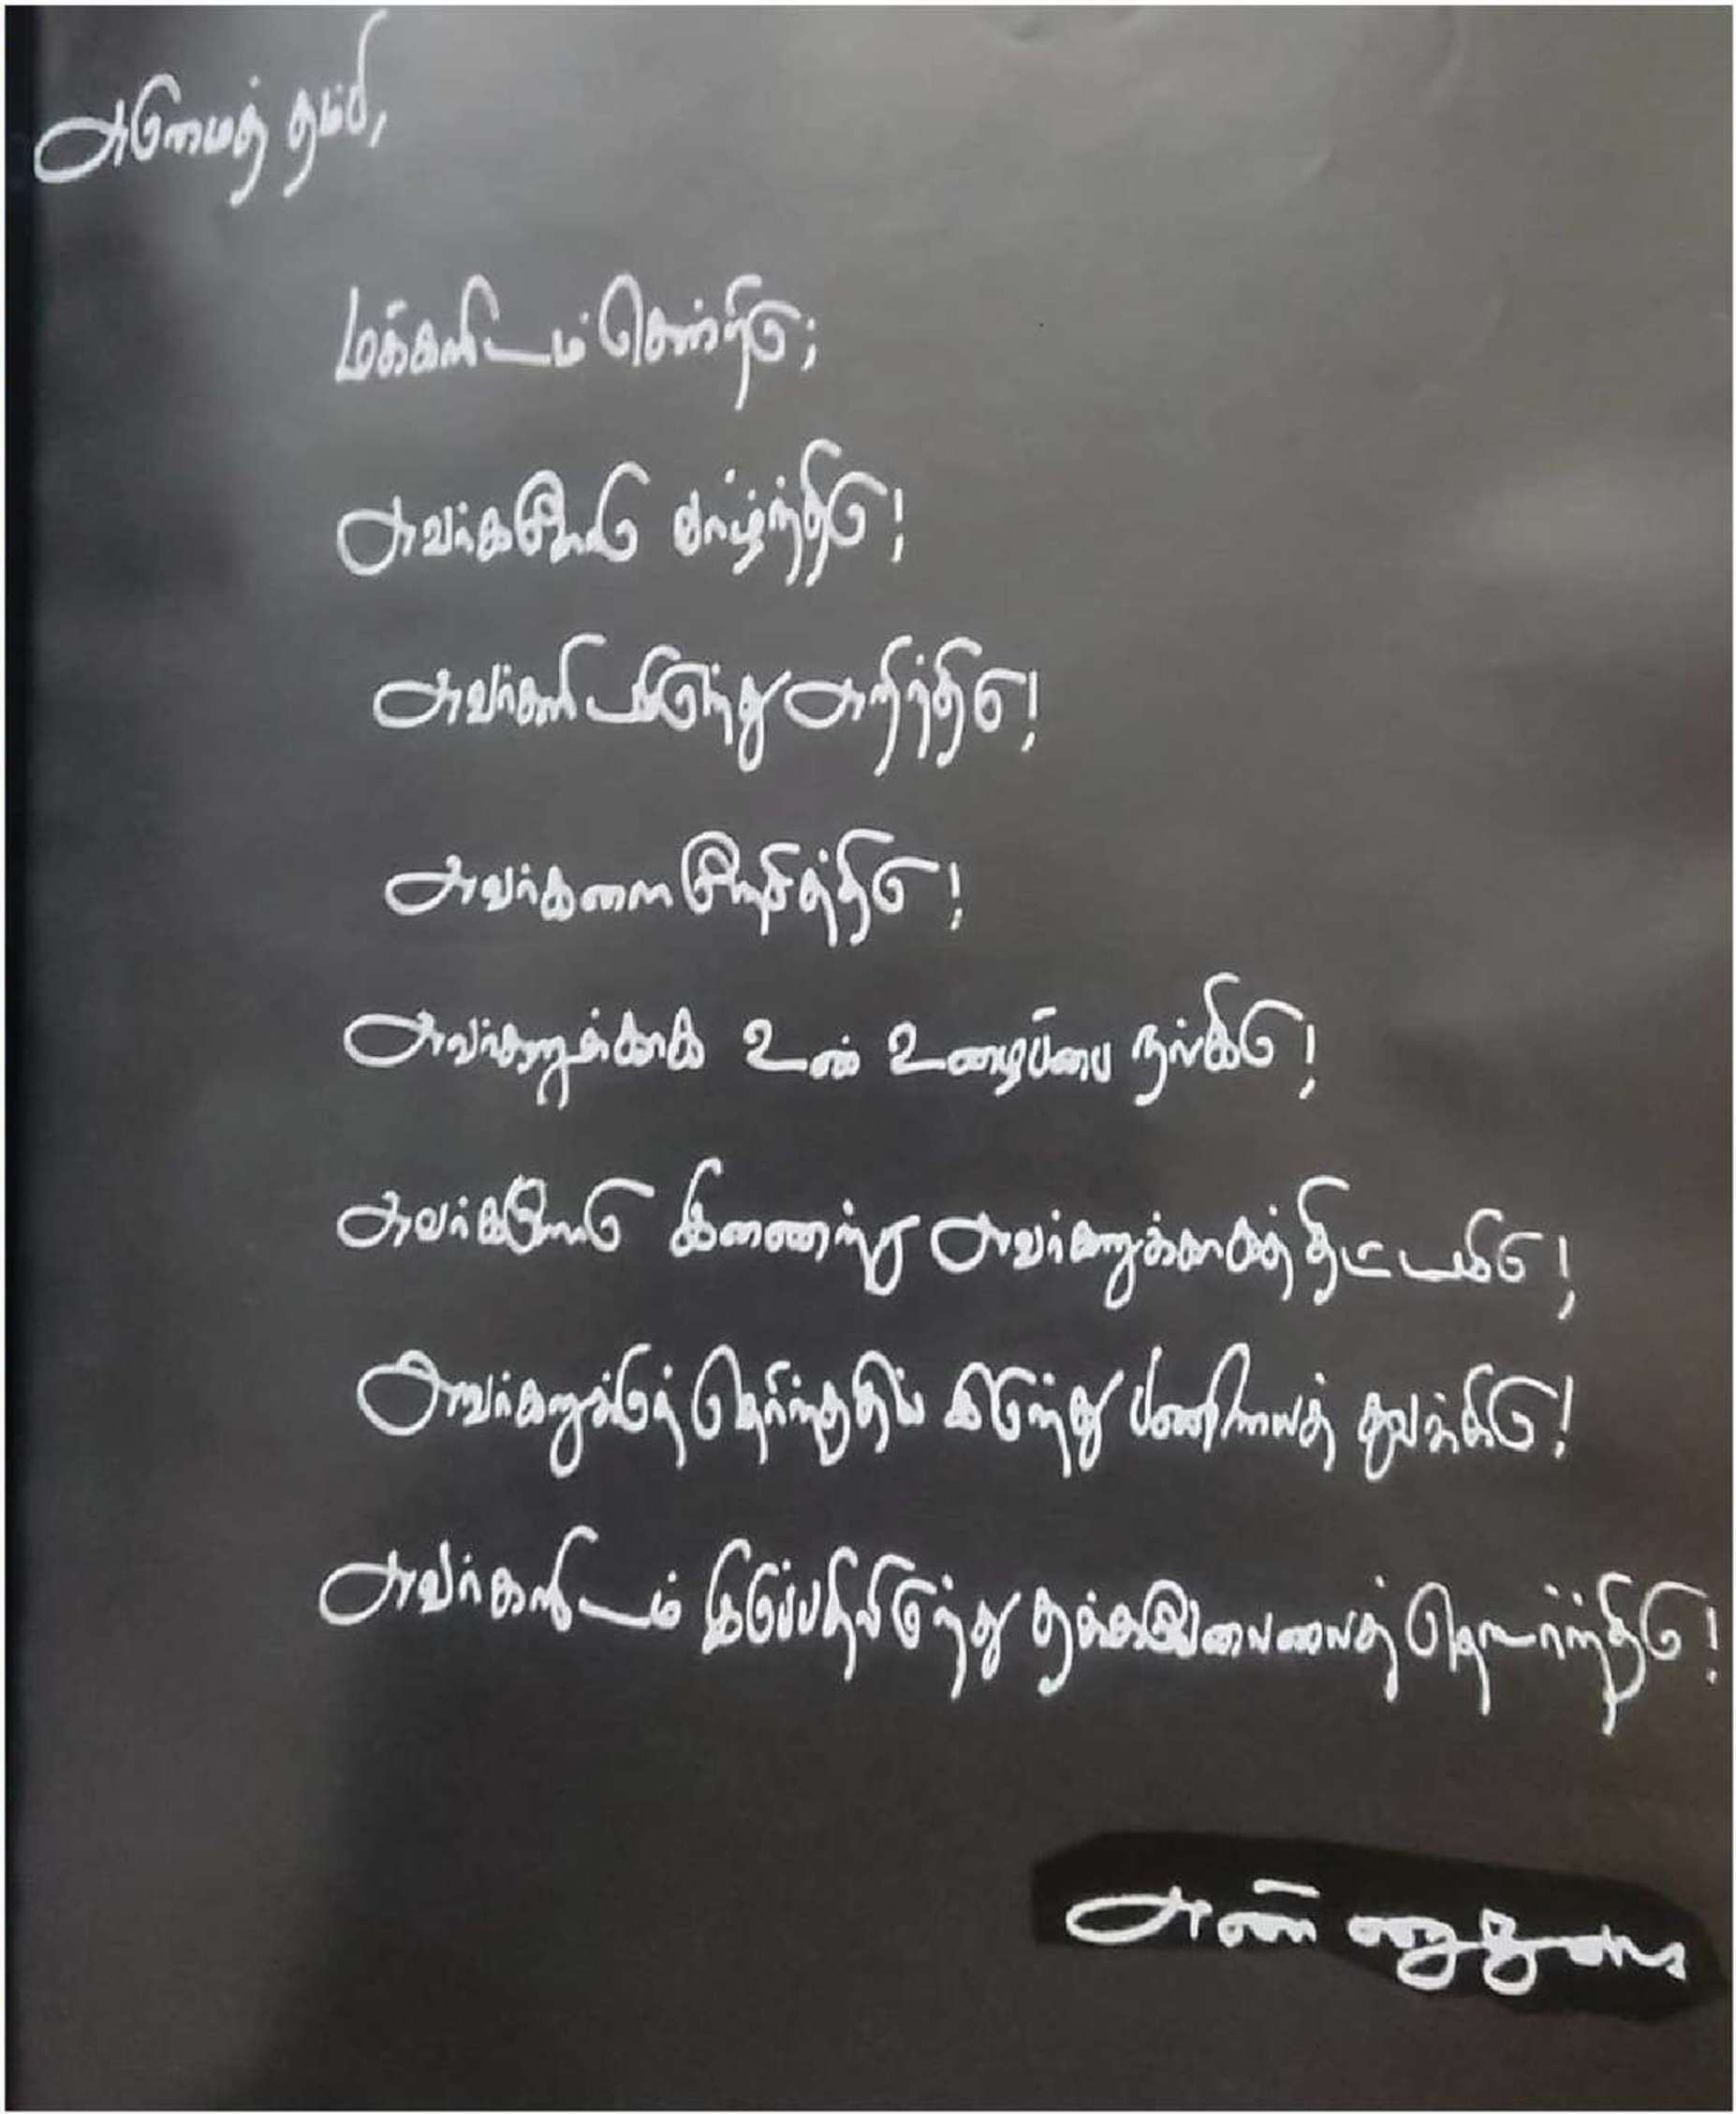 அருமைத் தம்பி,
மக்களிடம் சென்றிடு;
அவர்களோடு வாழ்ந்திடு!
அவர்களிடமிருந்து அறிந்திடு!
அவர்களை நேசித்திடு!
அவர்களுக்காக உன் உழைப்பை நல்கிடு!
அவர்களோடு இணைந்து அவர்களுக்காகத் திட்டமிடு!
அவர்களுக்குத் தெரிந்ததில் இருந்து பணியைத் துவக்கிடு!
அவர்களிடம் இருப்பதிலிருந்து தக்கவையைத் தொடர்ந்திடு!
அண்ணாதுரை